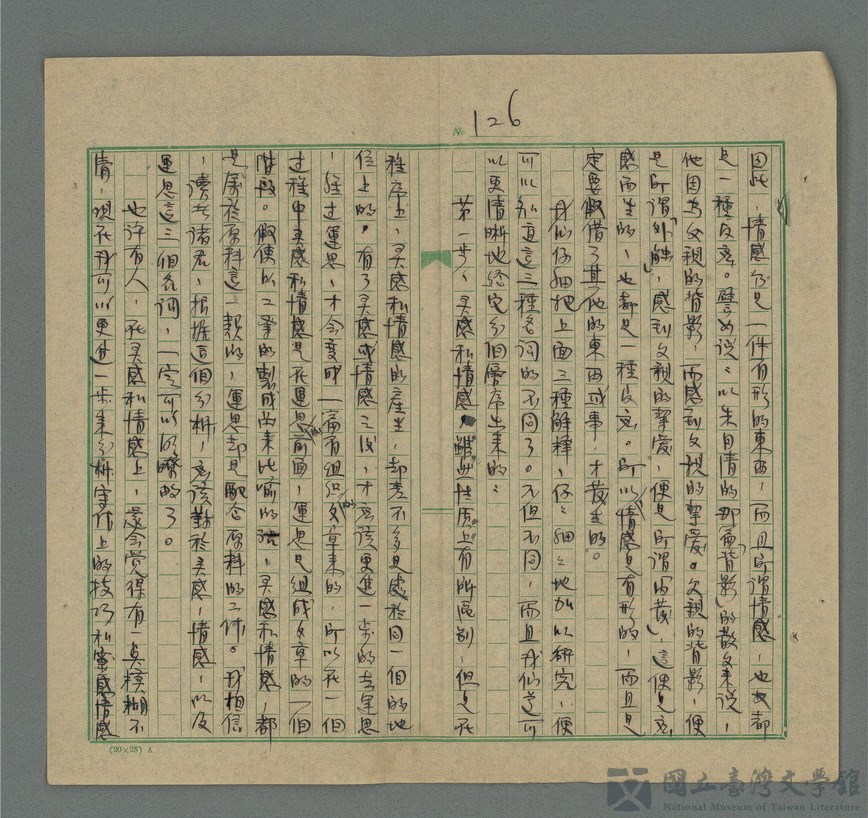 No 126
因此,情感仍是一件有形的東西,而且所謂情感,也大都
是一種反應。譬如說:以朱自清的那篇「背影」的散文來說,
他因為父親的背影,而感到父親的摯愛。父親的背影,便
是所謂「外觸」,感到父親的摯愛,便是所謂「因發」,這便是應
感而生的,也都是一種反應。所以,情感是有形的,而且是
定要假借了其他的東西或事,才發生的。
我們仔細把上面三種解釋,仔仔細細地加以研究,便
可以知道這三種名詞的不同了。不但不同,而且我們還可
以更清晰地給它分個層序出來的:
第一步,灵感和情感,雖然性质上有所區別,但是在
程序上,灵感和情感的產生,却差不多是處於同一個的地
位上的。有了灵感或情感之後,才應該更進一步的去運思
,經过運思,才会变成一篇有組织的文章來的,所以在一個
过程中灵感和情感是在運思的前面,運思是組成文章的一個
階段。假使以工業的製成品來比喻的話,灵感和情感,都
是屬於原料這一類的,運思却是配合原料的工作。我相信
,讀者諸君,根據這個分析,應該對於灵感,情感,以及
運思這三個名詞,一定可以明瞭的了。
也许有人,在灵感和情感上,還会觉得有一點模糊不
清,現在我可以更進一步來分析寫作上的技巧和灵感情感
(20×25) A
國立臺灣文學館
National Museum of Taiwan Literature